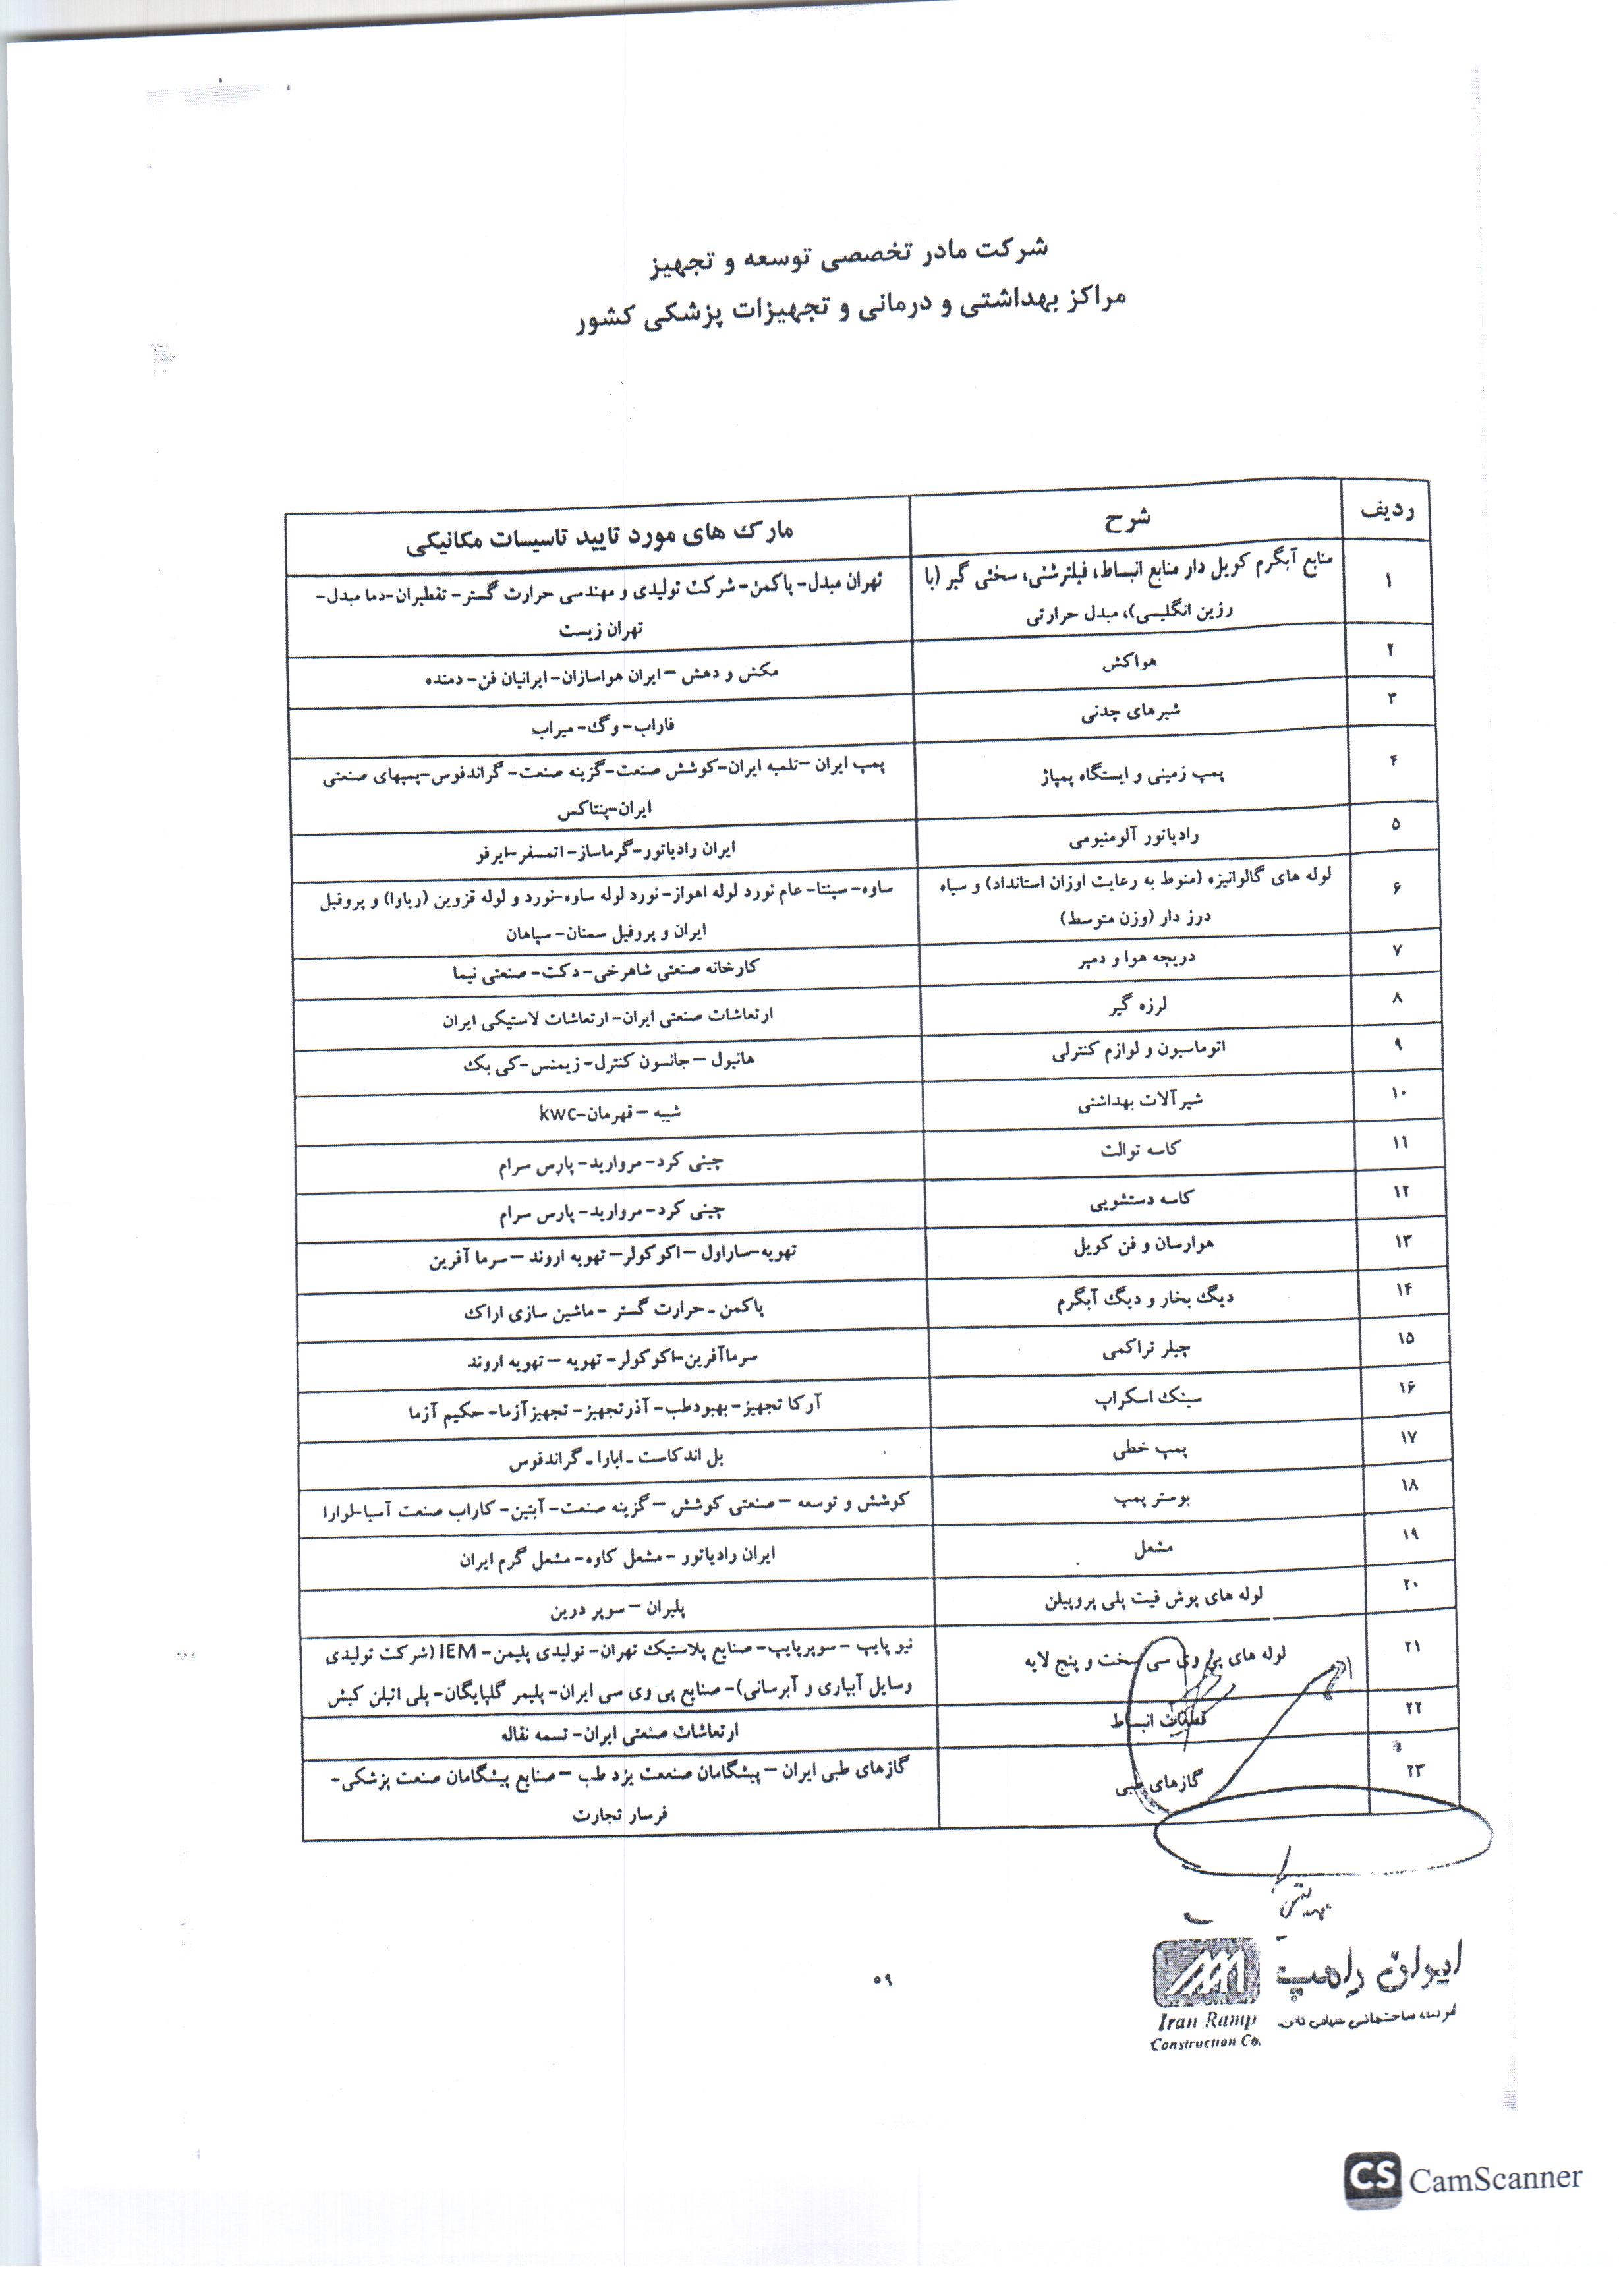 شرکت مادر تخصصی توسعه و تجهیز
مراکز بهداشتی و درمانی و تجهیزات پزشکی کشور
ردیف شرح مارک های مورد تایید تاسیسات مکانیکی
۱ منابع آبگرم کویل دار منابع انبساط، فیلترشنی، سختی گیر (با تهران مبدل- پاکمن- شرکت تولیدی و مهندسی حرارت گستر- تفطیران-دما مبدل-
رزین انگلیسی)، مبدل حرارتی تهران زیست
۲ هواکش مکش و دهش – ایران هواسازان- ایرانیان فن- دمنده
۳ شیرهای چدنی فاراب- وگ- میراب
۴ پمپ زمینی و ایستگاه پمپاژ پمپ ایران –تلمبه ایران-کوشش صنعت-گزینه صنعت- گراندفوس-پمپهای صنعتی
ایران-پنتاکس
۵ رادیاتور آلومنیومی ایران رادیاتور-گرماساز- اتمسفر-ایرفو
۶ لوله های گالوانیزه (منوط به رعایت اوزان استانداد) و سیاه ساوه- سپنتا- عام نورد لوله اهواز- نورد لوله ساوه-نورد و لوله قزوین (ریاوا) و پروفیل
درز دار (وزن متوسط) ایران و پروفیل سمنان- سپاهان
۷ دریچه هوا و دمپر کارخانه صنعتی شاهرخی- دکت- صنعتی نیما
۸ لرزه گیر ارتعاشات صنعتی ایران- ارتعاشات لاستیکی ایران
۹ اتوماسیون و لوازم کنترلی هانیول – جانسون کنترل- زیمنس-کی بک
۱۰ شیرآلات بهداشتی شیبه – قهرمان-kwc
۱۱ کاسه توالت چینی کرد- مروارید- پارس سرام
۱۲ کاسه دستشویی چینی کرد- مروارید- پارس سرام
۱۳ هوارسان و فن کویل تهویه-ساراول – اکوکولر- تهویه اروند – سرما آفرین
۱۴ دیگ بخار و دیگ آبگرم پاکمن ـ حرارت گستر – ماشین سازی اراک
۱۵ چیلر تراکمی سرماآفرین-اکوکولر- تهویه – تهویه اروند
۱۶ سینک اسکراپ آرکا تجهیز- بهبودطب- آذرتجهیز- تجهیزآزما- حکیم آزما
۱۷ پمپ خطی بل اندکاست ـ ابارا ـ گراندفوس
۱۸ بوستر پمپ کوشش و توسعه – صنعتی کوشش – گزینه صنعت- آبتین- کاراب صنعت آسیا-لوارا
۱۹ مشعل ایران رادیاتور – مشعل کاوه- مشعل گرم ایران
۲۰ لوله های پوش فیت پلی پروپیلن پلیران – سوپر درین
۲۱ لوله های پی وی سی سخت و پنج لایه نیو پایپ – سوپرپایپ- صنایع پلاستیک تهران- تولیدی پلیمن- IEM (شرکت تولیدی
وسایل آبیاری و آبرسانی)- صنایع پی وی سی ایران- پلیمر گلپایگان- پلی اتیلن کیش
۲۲ قطعات انبساط ارتعاشات صنعتی ایران- تسمه نقاله
۲۳ گازهای طبی گازهای طبی ایران – پیشگامان صنعت یزد طب – صنایع پیشگامان صنعت پزشکی-
فرسار تجارت
ایران رامپ
Iran Ramp
Construction Co.
۵۹
CS CamScanner